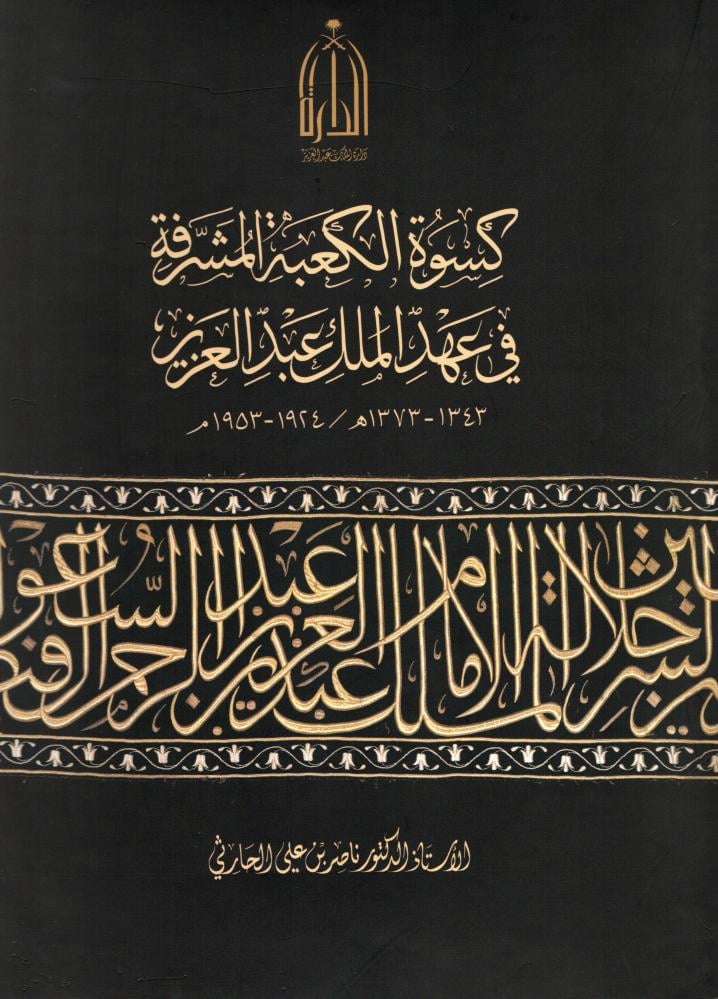 الدارة
دارة الملك عبد العزيز
كسوة الكعبة المشرفة
في عهد الملك عبد العزيز
١٣٤٣-١٣٧٣هـ/ ١٩٢٤-١٩٥٣م
جلالة الإمام عبد العزيز
الملك عبد
الرحمن
السعود
الأستاذ الدكتور ناصر بن علي الحارثي